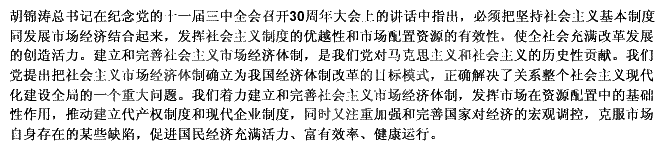 胡锦涛总书记在纪念党的十一届三中全会召开30周年大会上的讲话中指出，必须把坚持社会主义基本制度
同发展市场经济结合起来，发挥社会主义制度的优越性和市场配置资源的有效性，使全社会充满改革发展
的创造活力。建立和完善社会主义市场经济体制，是我们党对马克思主义和社会主义的历史性贡献。我们
党提出把社会主义市场经济体制确立为我国经济体制改革的目标模式，正确解决了关系整个社会主义现代
化建设全局的一个重大问题。我们着力建立和完善社会主义市场经济体制，发挥市场在资源配置中的基础
性作用，推动建立代产权制度和现代企业制度，同时又注重加强和完善国家对经济的宏观调控，克服市场
自身存在的某些缺陷，促进国民经济充满活力、富有效率、健康运行。